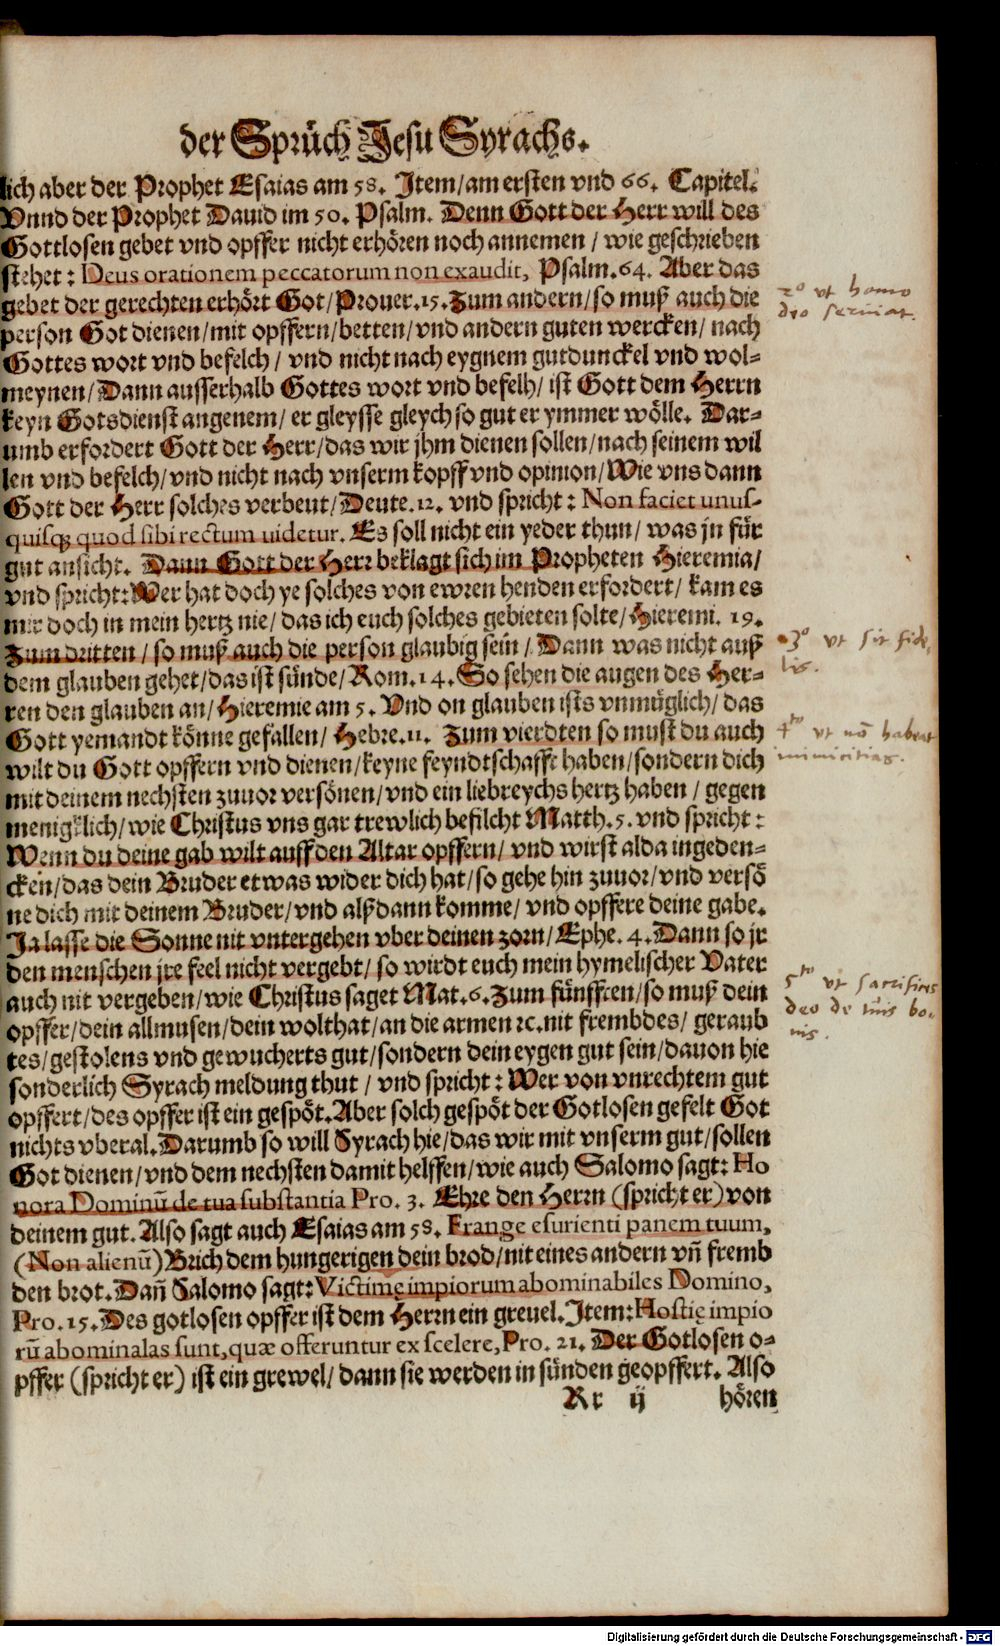 der Sprüch Jesu Syrachs.
lich aber der Prophet Esaias am 58. Item/am ersten vnd 66. Capitel.
Vnnd der Prophet Dauid im 50. Psalm. Denn Gott der Herr will des
Gottlosen gebet vnd opffer nicht erhören noch annemen / wie geschrieben
stehet: Deus orationem peccatorum non exaudit, Psalm. 64. Aber das
gebet der gerechten erhört Got/Prouer. 15. Zum andern/so muß auch die
person Got dienen/mit opffern/betten/vnd andern guten wercken/ nach
Gottes wort vnd befelch / vnd nicht nach eygnem gutdunckel vnd wol-
meynen/Dann ausserhalb Gottes wort vnd befelh/ ist Gott dem Herrn
keyn Gotsdienst angenem/ er gleysse gleych so gut er ymmer wölle. Dar-
umb erfordert Gott der Herr/das wir jhm dienen sollen/nach seinem wil
len vnd befelch/vnd nicht nach vnserm kopff vnd opinion/Wie vns dann
Gott der Herr solches verbeut/Deute. 12. vnd spricht: Non faciet unus-
quisq; quod sibi rectum uidetur. Es soll nicht ein yeder thun/ was jn für
gut ansicht. Dann Gott der Herr beklagt sich im Propheten Hieremia/
vnd spricht: Wer hat doch ye solches von ewren henden erfordert/ kam es
mir doch in mein hertz nie/das ich euch solches gebieten solte/Hieremi. 19.
Zum dritten/so muß auch die person glaubig sein/ Dann was nicht auß
dem glauben gehet/das ist sünde/Rom. 14. So sehen die augen des Her-
ren den glauben an/Hieremie am 5. Vnd on glauben ists vnmüglich/das
Gott yemandt könne gefallen/ Hebre. 11. Zum vierdten so must du auch
wilt du Gott opffern vnd dienen/keyne feyndtschafft haben/sondern dich
mit deinem nechsten zuuor versönen/vnd ein liebreychs hertz haben / gegen
menigklich/wie Christus vns gar trewlich befilcht Matth. 5. vnd spricht:
Wenn du deine gab wilt auff den Altar opffern/ vnd wirst alda ingeden-
cken/das dein Bruder etwas wider dich hat/so gehe hin zuuor/vnd versö
ne dich mit deinem Bruder/vnd alßdann komme/ vnd opffere deine gabe.
Ja lasse die Sonne nit vntergehen vber deinen zorn/Ephe. 4. Dann so jr
den menschen jre feel nicht vergebt/so wirdt euch mein hymelischer Vater
auch nit vergeben/wie Christus saget Mat. 6. Zum fünfften/so muß dein
opffer/dein allmusen/dein wolthat/an die armen ꝛc. nit frembdes/ geraub
tes/gestolens vnd gewucherts gut/sondern dein eygen gut sein/dauon hie
sonderlich Syrach meldung thut / vnd spricht: Wer von vnrechtem gut
opffert/des opffer ist ein gespöt. Aber solch gespöt der Gotlosen gefelt Got
nichts vberal. Darumb so will Syrach hie/das wir mit vnserm gut/sollen
Got dienen/vnd dem nechsten damit helffen/wie auch Salomo sagt: Ho
nora Dominū de tua substantia Pro. 3. Ehre den Herrn (spricht er) von
deinem gut. Also sagt auch Esaias am 58. Frange esurienti panem tuum,
(Non alienū) Brich dem hungerigen dein brod/nit eines andern vn̄ fremb
den brot. Dan̄ Salomo sagt: Victimę impiorum abominabiles Domino,
Pro. 15. Des gotlosen opffer ist dem Herrn ein greuel. Item: Hostię impio
rū abominalas sunt, quæ offeruntur ex scelere, Pro. 21. Der Gotlosen o-
pffer (spricht er) ist ein grewel/ dann sie werden in sünden geopffert. Also
Rr ij hören
2º vt homo
deo seruiat.
3º vt sit fide,
lis.
4to vt nō habeat
inimicitias.
5to vt sacrifices
deo de tuis bo,
nis.
Digitalisierung gefördert durch die Deutsche Forschungsgemeinschaft - DFG